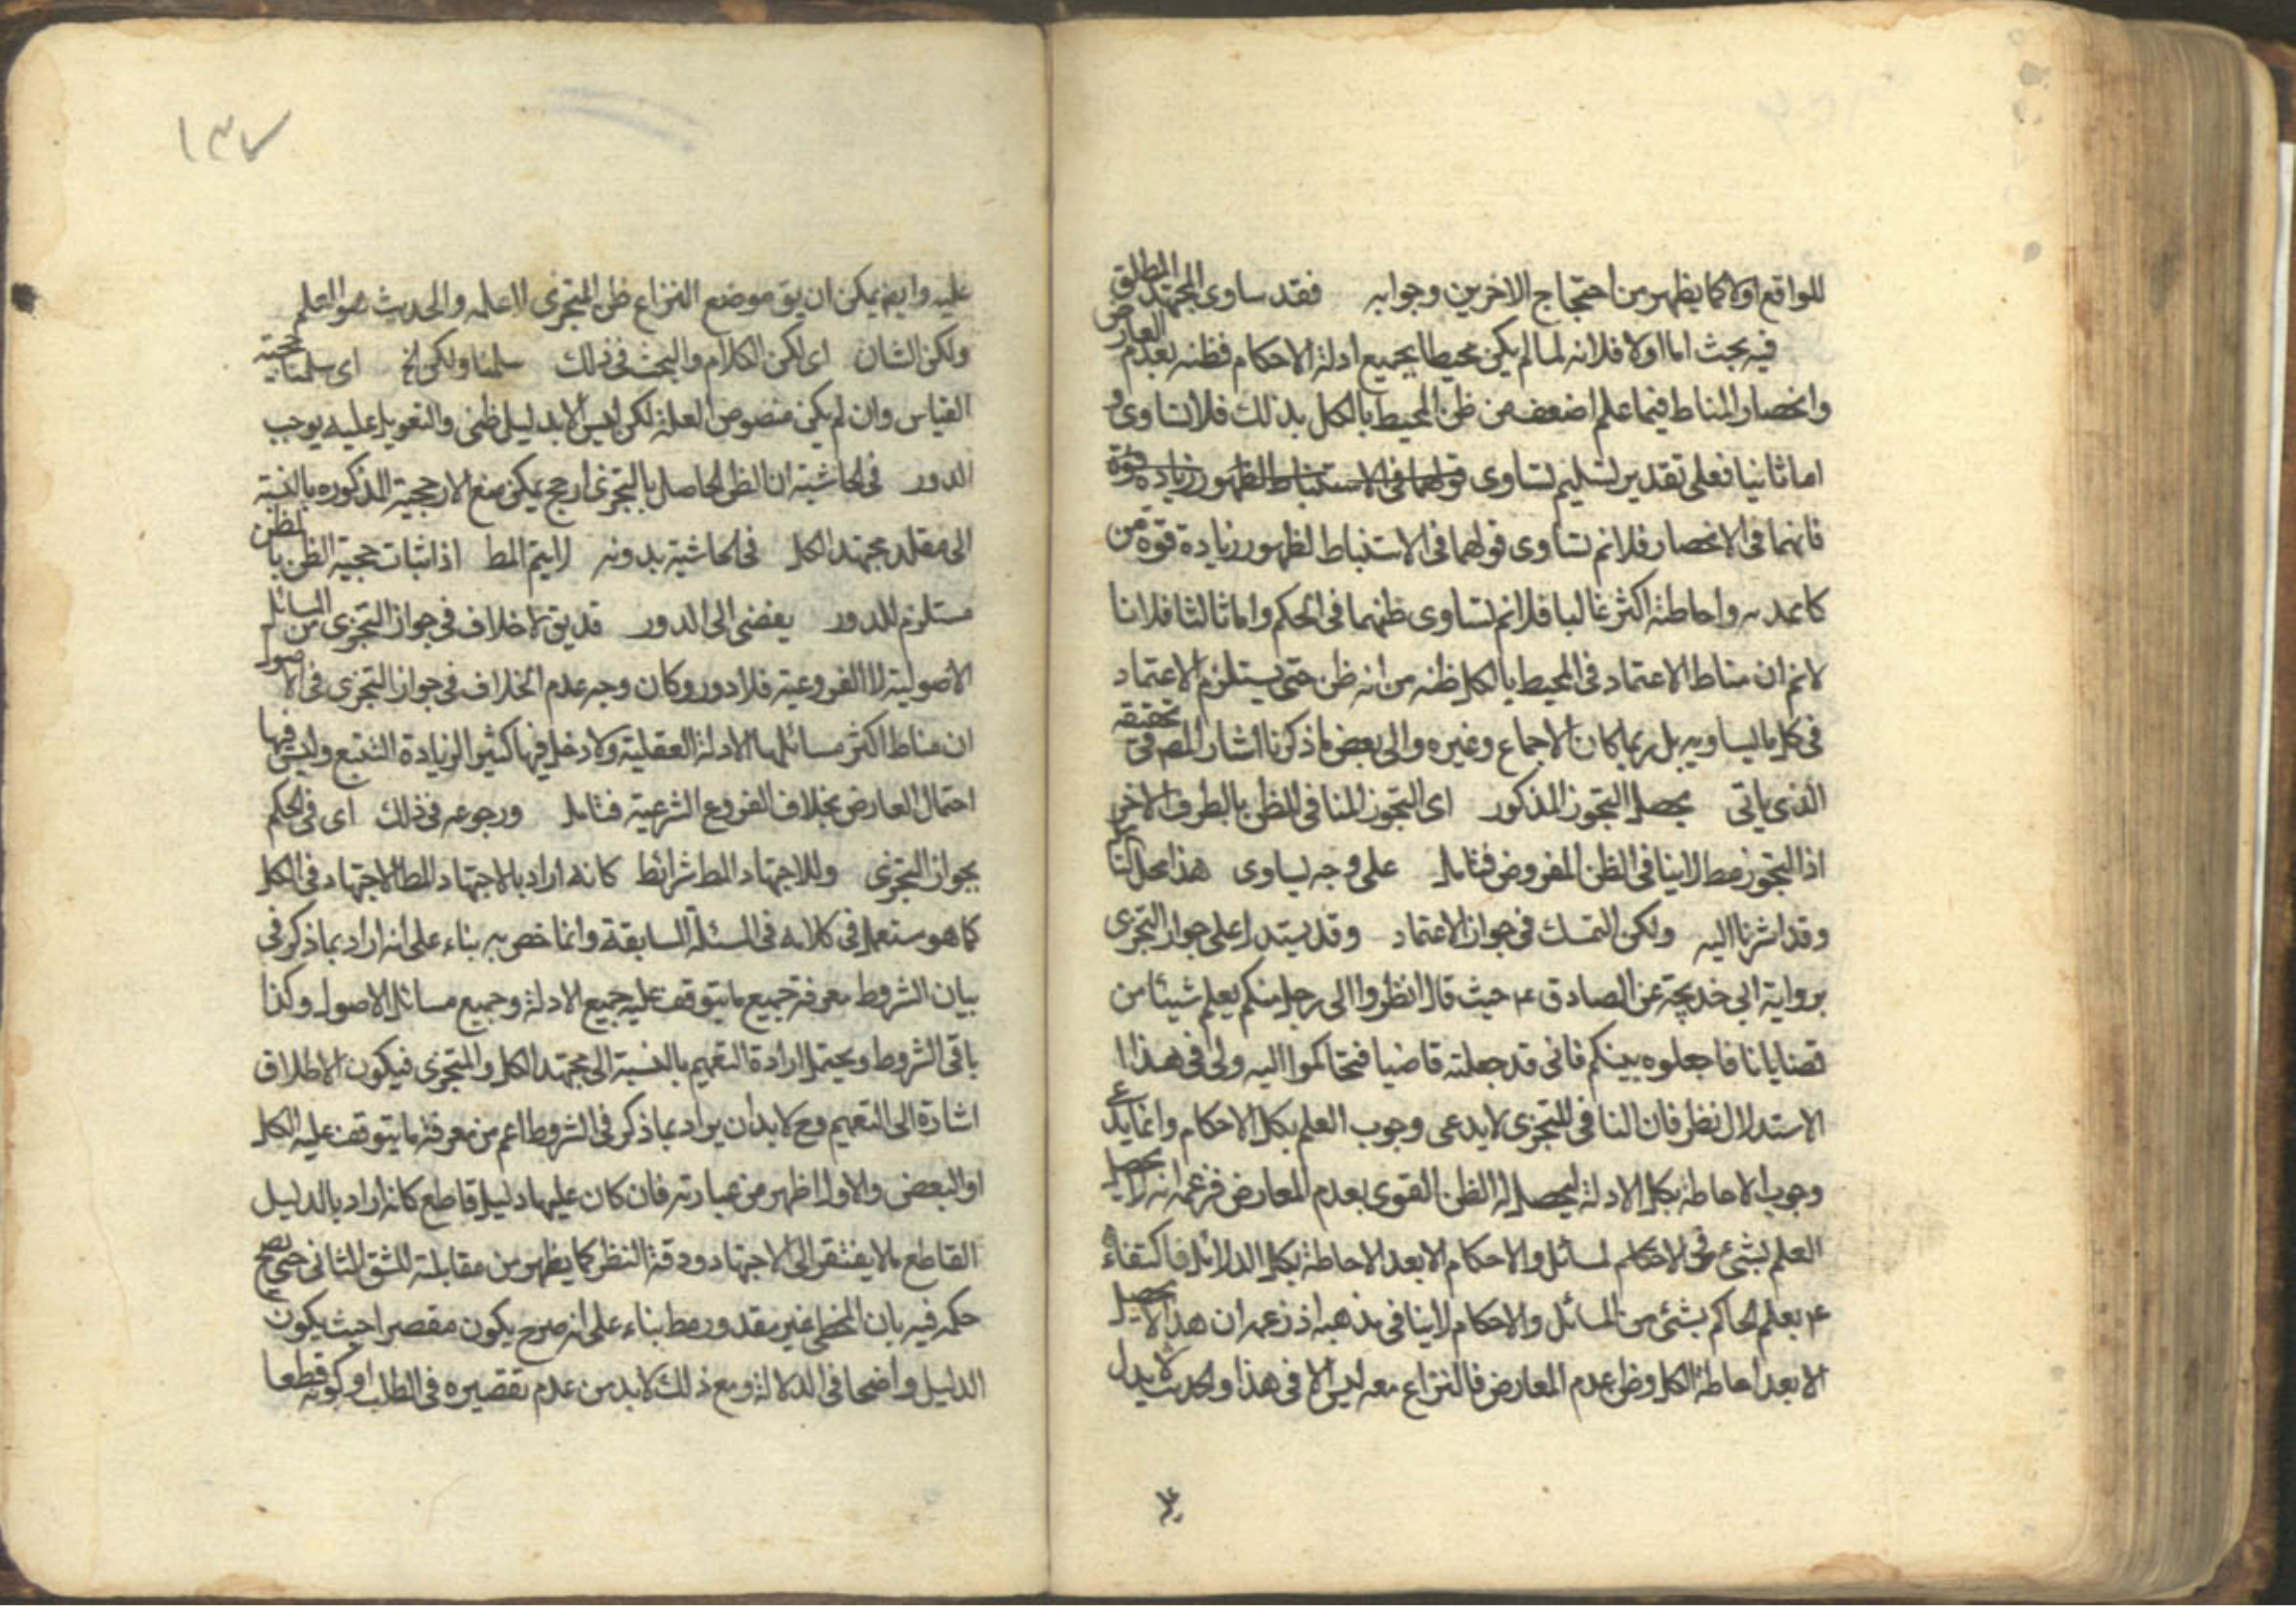 للواقع اولا كما يظهر من احتجاج الاخرين وجوابه فقد ساوى المجتهد المطلق
فيه بحث اما اولا فلانه لما لم يكن محيطا بجميع ادلة الاحكام فظنه بعدم المعارض
وانحصار المناط فيما علم اضعف من ظن المحيط بالكل بذلك فلا تساوى و
اما ثانيا فعلى تقدير تسليم تساوى قولهما فى الاستنباط لظهور زيادة قوة
فانهما فى الانحصار فلانم تساوى قولهما فى الاستنباط لظهور زيادة قوة من
كا واحاطته اكثر غالبا فلانم تساوى ظنهما فى الحكم واما ثالثا فلانا
لانم ان مناط الاعتماد فى المحيط بالكل ظنه من انه ظن حتى يستلزم الاعتماد
فى كل ما يساويه بل ربما كان الاجماع وغيره والى بعض ما ذكرنا اشار المص فى تحقيقه
الذى ياتى يحصل التجوز المذكور اى التجوز المنافى للظن بالطرف الاخر
اذ التجوز مط لا ينافى الظن المفروض فتامل على وجه يساوى هذا محل
وقد اشرنا اليه ولكن التمسك فى جواز الاعتماد وقد يستدل على جواز التجزى
برواية ابى خديجة عن الصادق ع حيث قال انظروا الى رجل منكم يعلم شيئا من
قضايانا فاجعلوه بينكم فانى قد جعلته قاضيا فتحاكموا اليه ولى فى هذا ا
الاستدلال نظر فان النافى للتجزى لا يدعى وجوب العلم بكل الاحكام وانما يدعى
وجوب الاحاطة بكل الادلة ليحصل له الظن القوى بعدم المعارض فزعمه انه لا يحصل
العلم بشئ من الاحكام المسائل والاحكام الا بعد الاحاطة بكل الدلائل فاكتفاءه
ع بعلم الحاكم بشئ من المسائل والاحكام لا ينافى مذهبه اذ زعمه ان هذا لا يحصل
الا بعد احاطة الكل وظن عدم المعارض فالنزاع معه ليس الا فى هذا والحديث لا يدل
١٣٧
عليه وايضا يمكن ان يق موضع النزاع ظن المتجزى لا علمه والحديث هو العلم
ولكن الشان اى لكن الكلام والبحث فى ذلك سلمنا ولكن الخ اى سلمنا حجية
القياس وان لم يكن منصوص العلة لكن ليس الا بدليل ظنى والتعويل عليه يوجب
الدور فى الحاشية ان الظن الحاصل بالتجزى ارجح يمكن منع الارجحية المذكوره بالنسبة
الى مقلد مجتهد الكل فى الحاشية بدونه لا يتم المط اذ اثبات حجية الظن بالظن
مستلزم للدور يفضى الى الدور قد يق لا خلاف فى جواز التجزى من المسائل
الاصولية لا الفروعية فلا دور وكان وجه عدم الخلاف فى جواز التجزى فى الاصول
ان مناط اكثر مسائلها الادلة العقلية ولا دخل فيها كثيرا لزيادة التتبع وليس فيها
احتمال المعارض بخلاف الفروع الشرعية فتامل ورجوعه فى ذلك اى فى الحكم
بجواز التجزى وللاجتهاد المط شرائط كانه اراد بالاجتهاد المط الاجتهاد فى الكل
كما هو مستعمل فى كلامه فى المسئلة السابقة وانما خص به بناء على انه اراد بما ذكر فى
بيان الشروط معرفة جميع ما يتوقف عليه جميع الادلة وجميع مسائل الاصول وكذا
باقى الشروط ويحتمل ارادة التعميم بالنسبة الى مجتهد الكل والمتجزى فيكون الاطلاق
اشارة الى التعميم وح لابد ان يراد بما ذكر فى الشروط اعم من معرفة ما يتوقف عليه الكل
او البعض والاول اظهر من عبارته فان كان عليها دليل قاطع كانه اراد بالدليل
القاطع ما لا يفتقر الى الاجتهاد ودقة النظر كما يظهر من مقابلة للشق الثانى حتى يصح
حكمه فيه بان المخطى غير مقدور مط بناء على انه صرح يكون مقصرا حيث يكون
الدليل واضحا فى الدلالة ومع ذلك لابد من عدم تقصيره فى الطلب او كونه قطعا